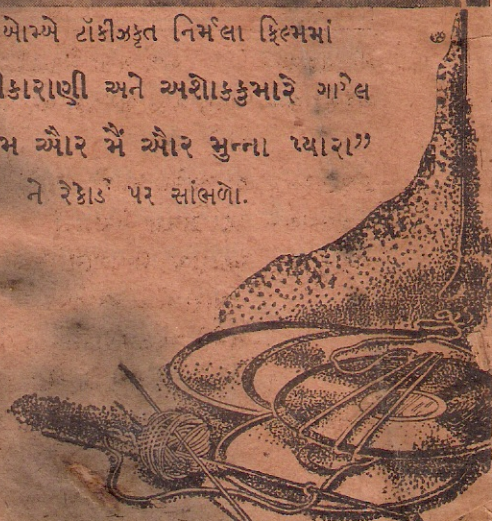 બોમ્બે ટૉકીઝકૃત નિર્મલા ફિલ્મમાં
કારાણી અને અશોકકુમારે ગાએલ
મ ઔર મૈં ઔર મુન્ના પ્યારા”
ને રેકોર્ડ પર સાંભળો.